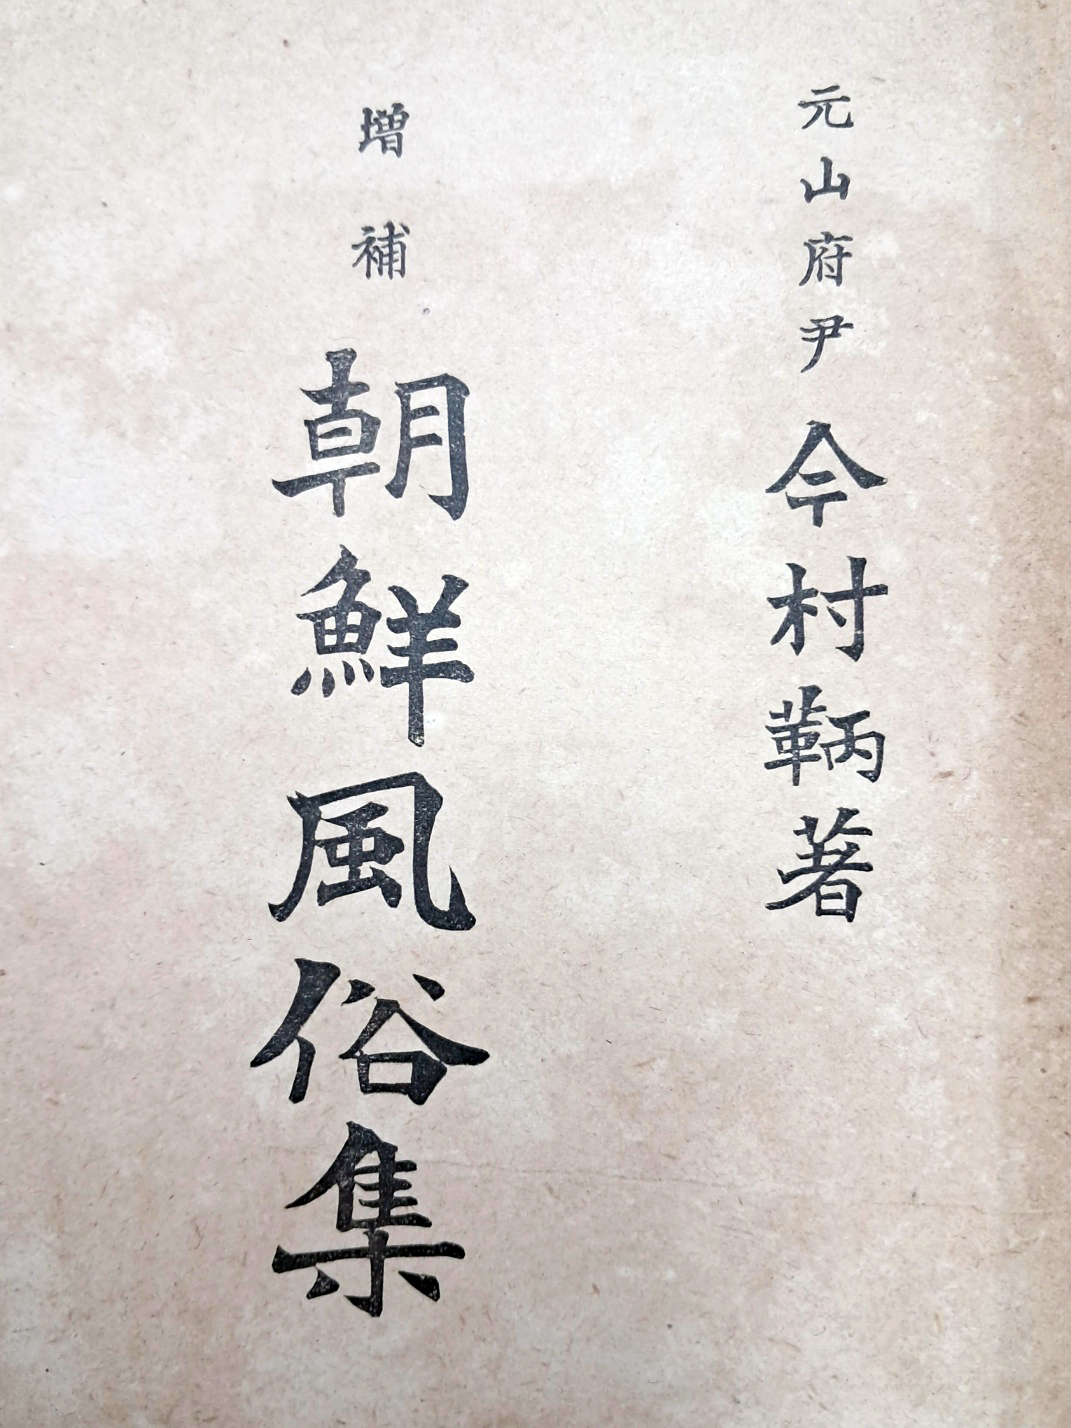 元山府尹 今村鞆著
增補 朝鮮風俗集